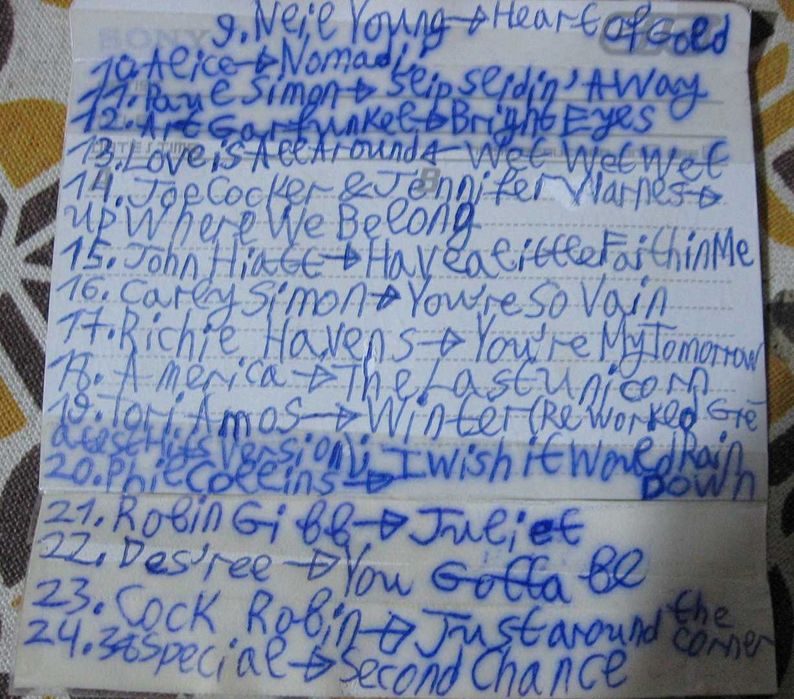 SONY
9. Neil Young → Heart Of Gold
10. Alice → Nomadi
11. Paul Simon → Slip Slidin' AWay
12. Art Garfunkel → Bright Eyes
13. Love is All Around ← Wet Wet Wet
14. Joe Cocker & Jennifer Warnes →
Up Where We Belong
15. John Hiatt → Have a little Faith in Me
16. Carly Simon → You're So Vain
17. Richie Havens → You're My Tomorrow
18. America → The Last Unicorn
19. Tori Amos → Winter (Reworked Gre
atest Hits Version)
20. Phil Collins → I Wish it Would Rain
Down
21. Robin Gibb → Juliet
22. Des'ree → You Gotta Be
23. Cock Robin → Just around the
corner
24. 38 Special → Second Chance